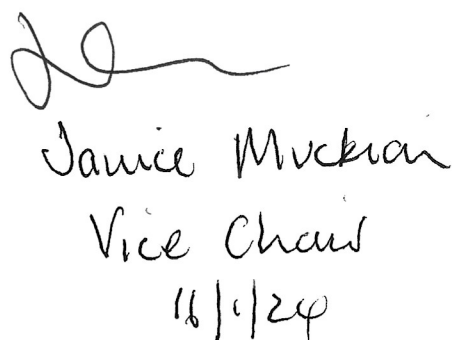 Janice Muckian
Vice Chair
16/1/24